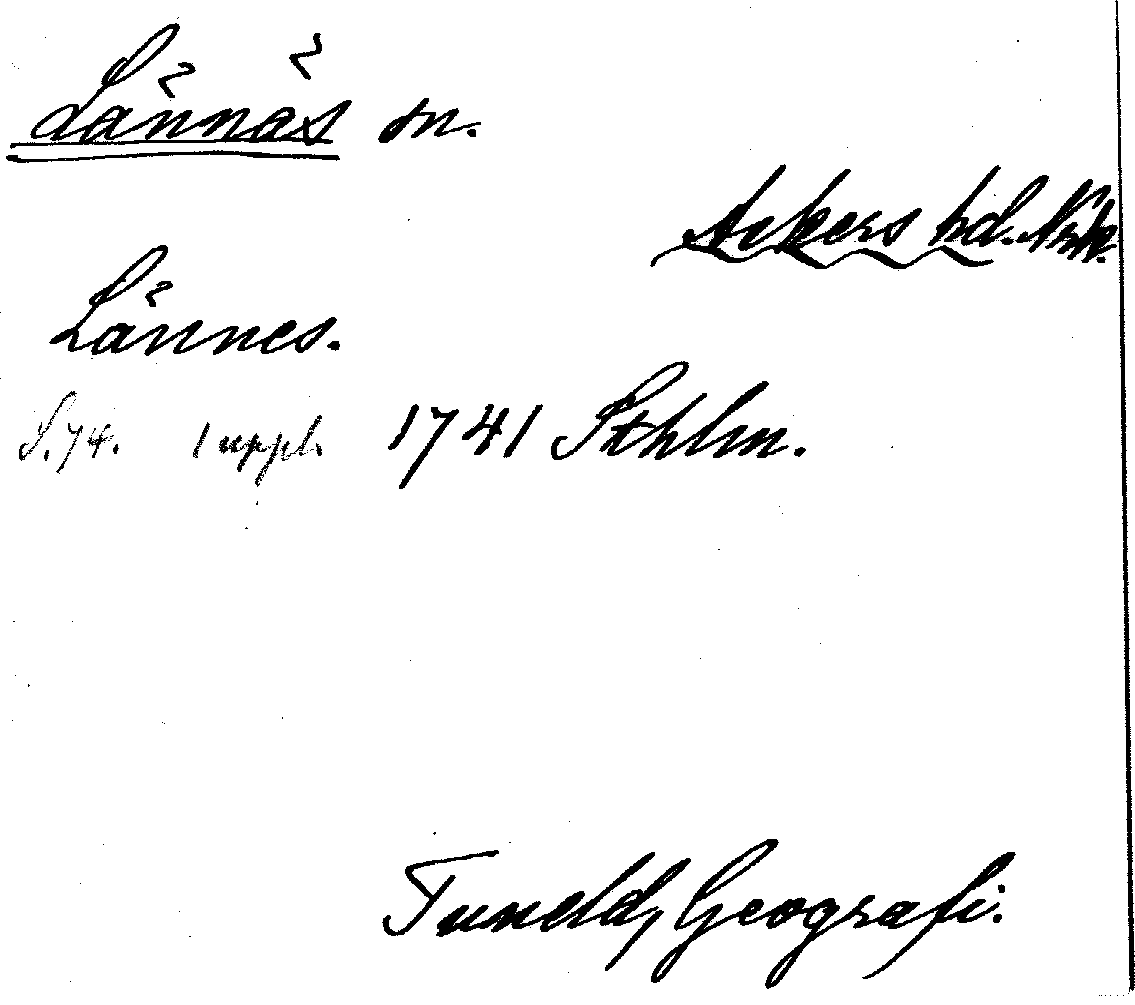 Lännäs sn.
Askers hd. Nrk.
Lännes.
S. 74. 1 uppl. 1741 Sthlm.
Tuneld, Geografi.